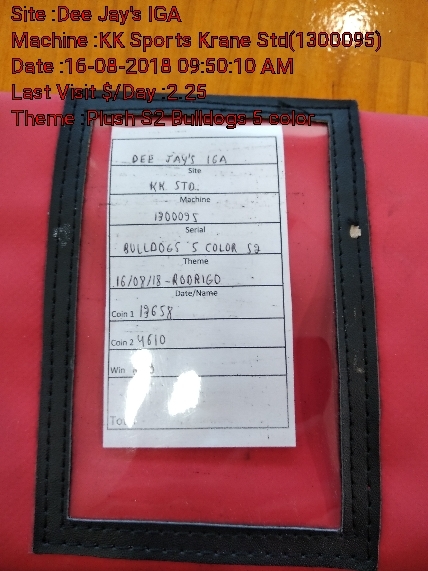 Site :Dee Jay's IGA
Machine :KK Sports Krane Std(1300095)
Date :16-08-2018 09:50:10 AM
Last Visit $/Day :2.25
Theme :Plush S2 Bulldogs 5 color
DEE JAY'S IGA
Site
KK STD.
Machine
1300095
Serial
BULLDOGS 5 COLOR S2
Theme
16/08/18-RODRIGO
Date/Name
Coin 1 13658
Coin 2 4610
Win